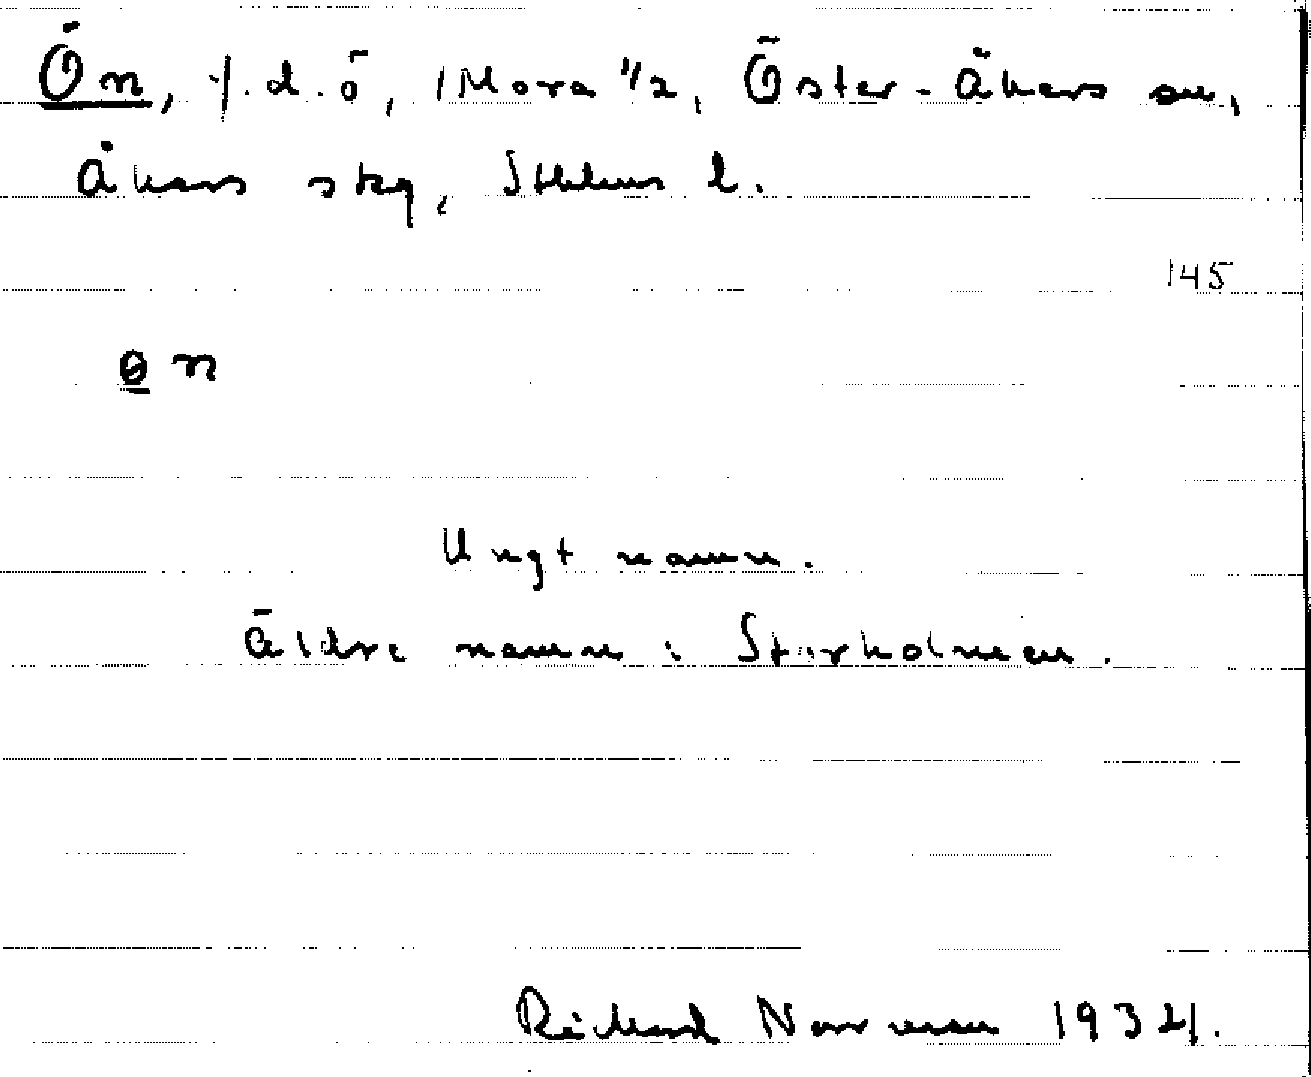 Ön, f.d. ö, Mora 1/2, Öster-Åkers sn,
Åkers skg, Sthlms l.
145
ɵn
Ungt namn.
Äldre namn: Storholmen.
Rickard Norrman 1934.